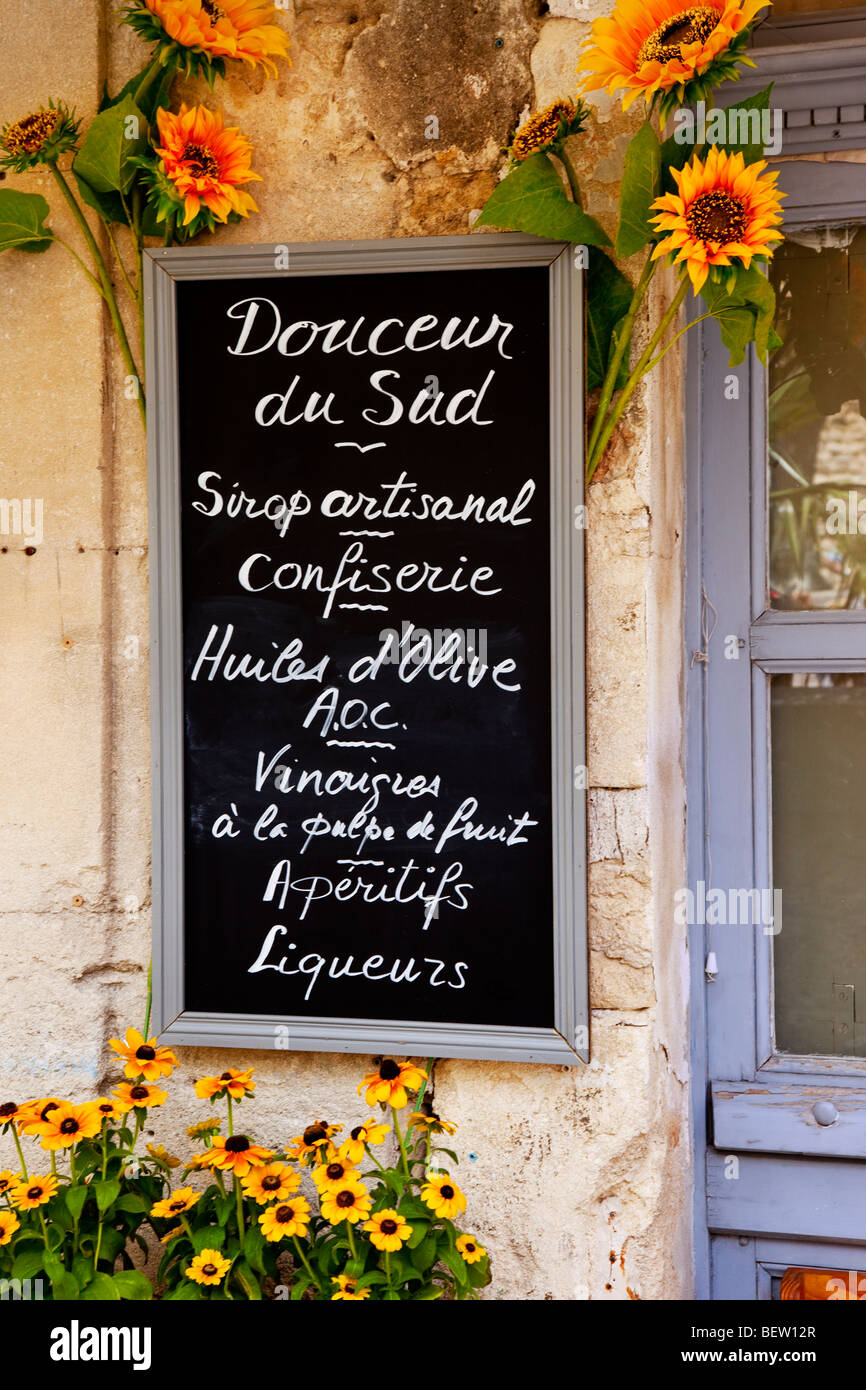 Douceur
du Sud
Sirop artisanal
Confiserie
Huiles d'Olive
A.O.C.
Vinaigres
à la pulpe de fruit
Apéritifs
Liqueurs
alamy
Image ID: BEW12R
www.alamy.com